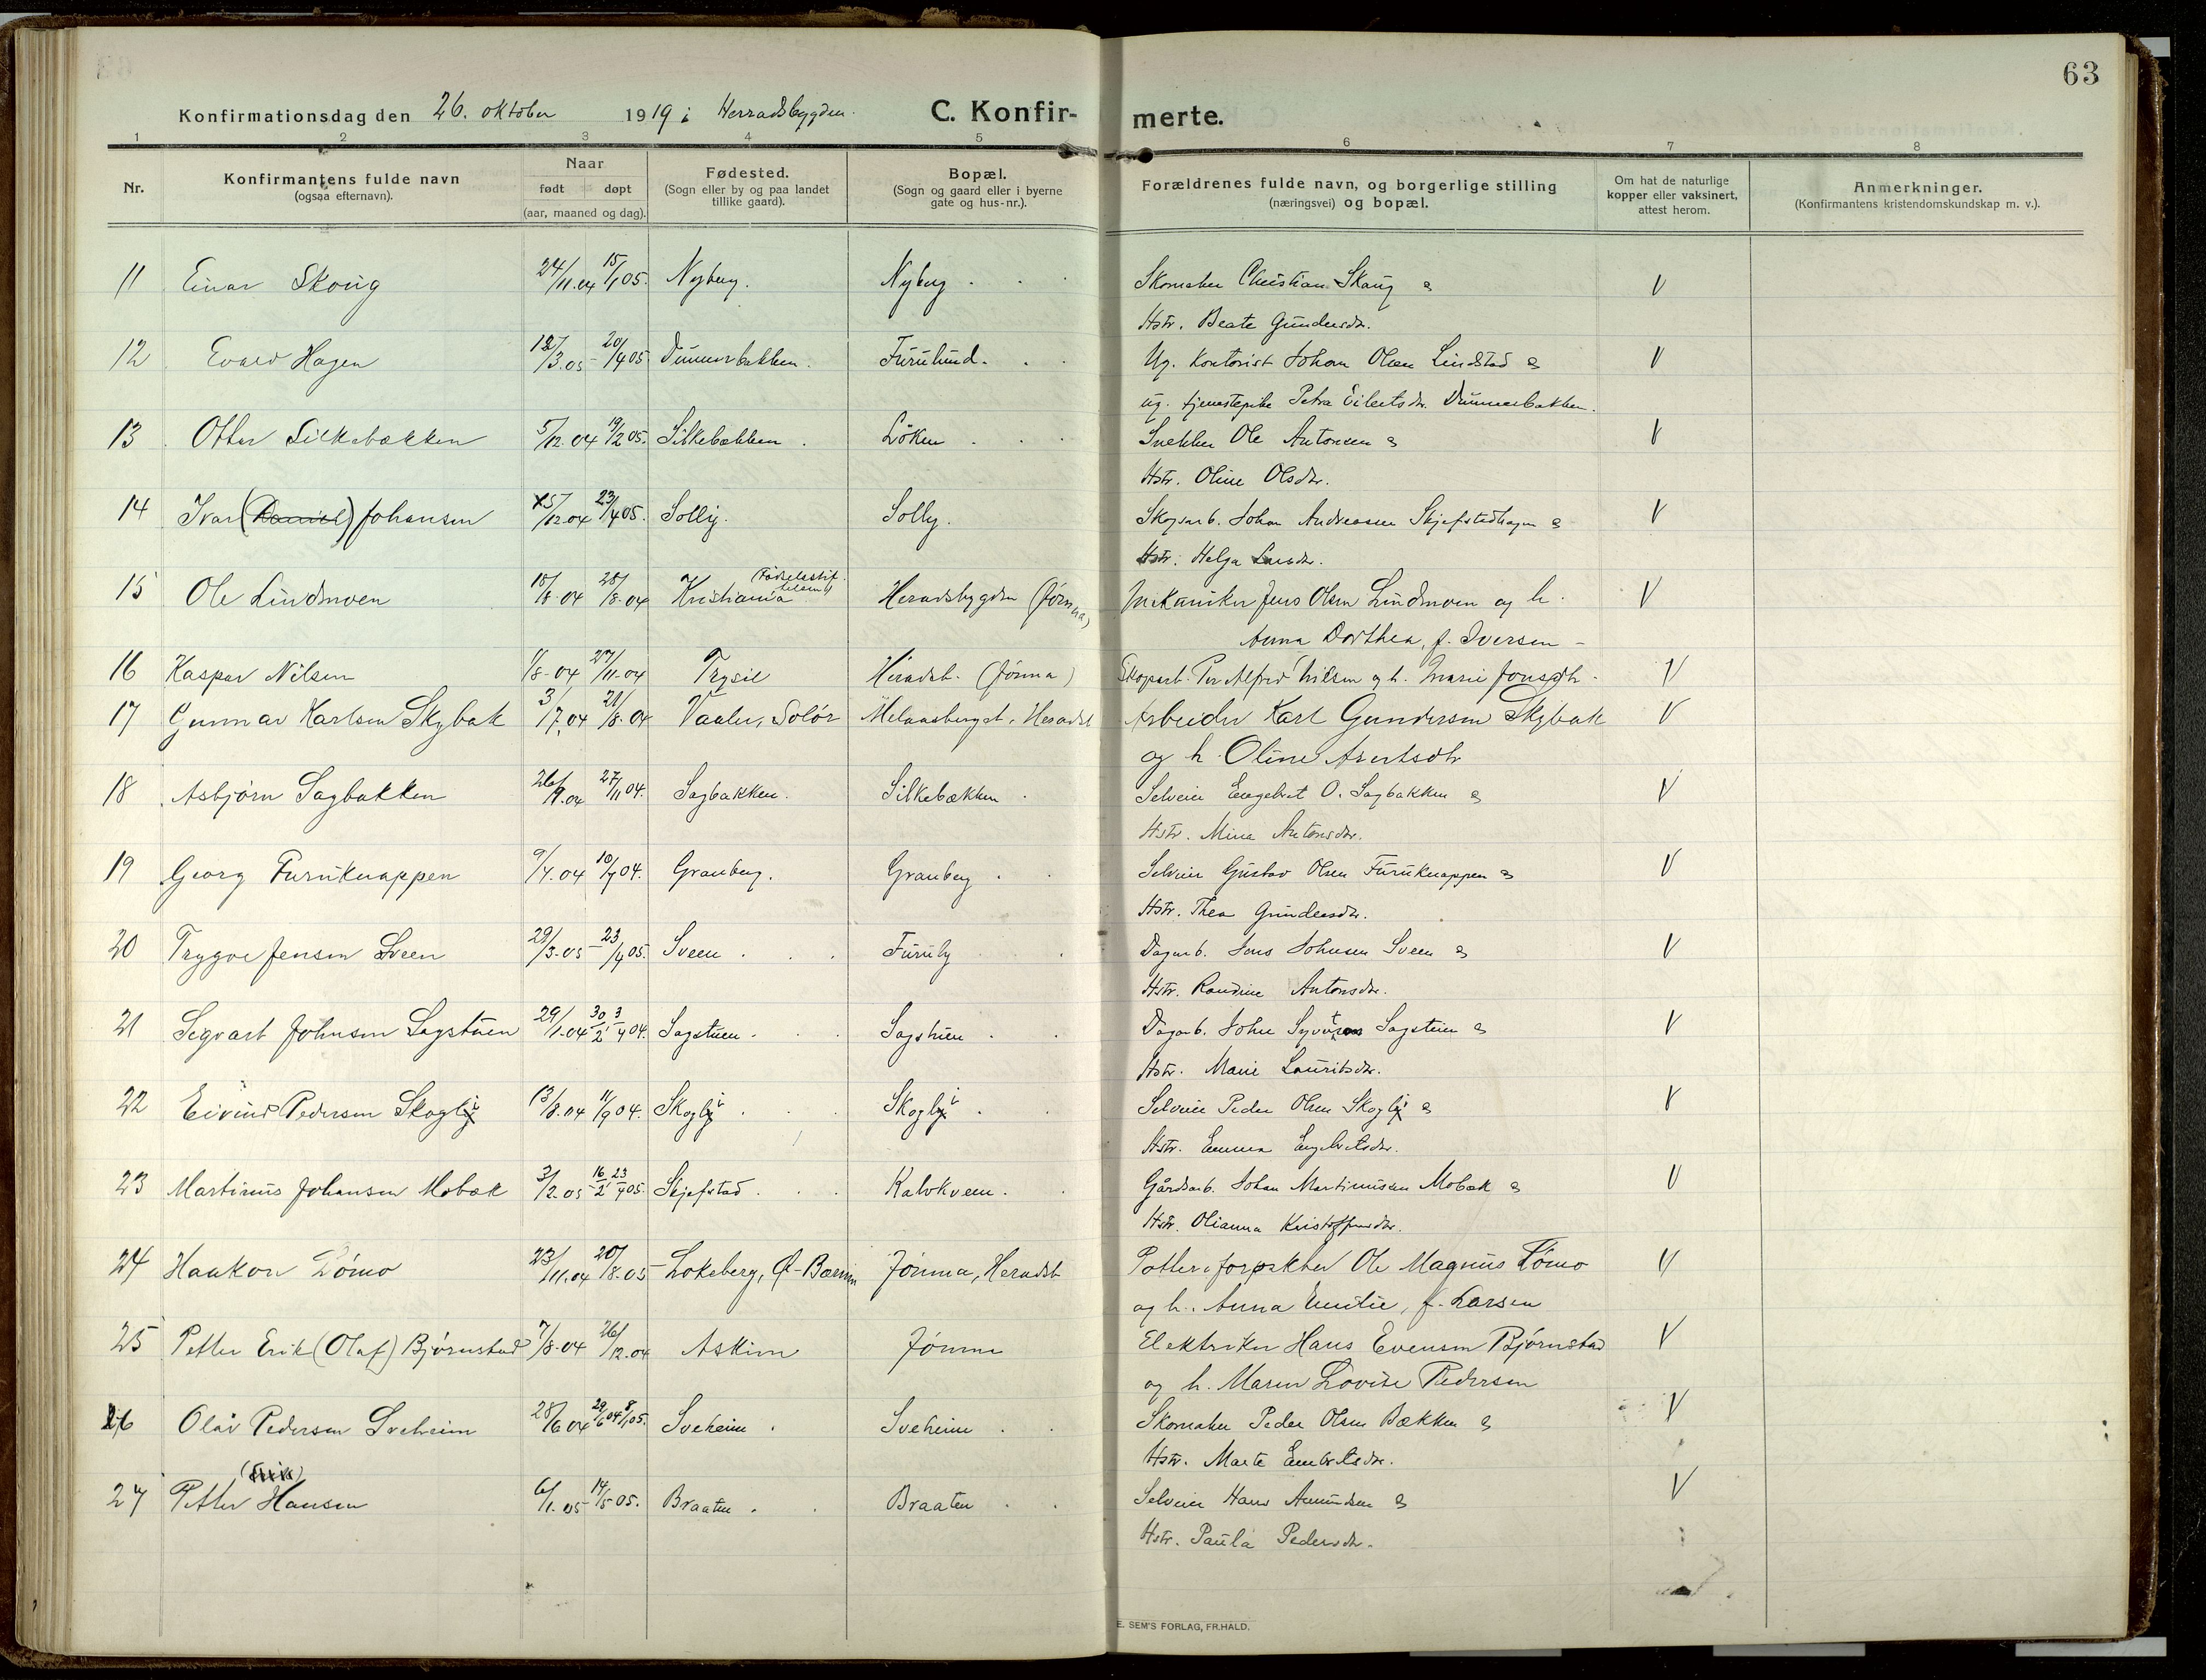 63
Konfirmationsdag den 26. oktober 1919 i Herradsbygden. C. Konfir- merte.
1 2 3 4 5 6 7 8
Nr. Konfirmantens fulde navn (ogsaa efternavn). Naar født døpt (aar, maaned og dag). Fødested. (Sogn eller by og paa landet tillike gaard). Bopæl. (Sogn og gaard eller i byerne gate og hus-nr.). Forældrenes fulde navn, og borgerlige stilling (næringsvei) og bopæl. Om hat de naturlige kopper eller vaksinert, attest herom. Anmerkninger. (Konfirmantens kristendomskundskap m. v.).
11 Einar Skoug 24/11.04 15/1 05. Nyberg. Nyberg. Skomaker Christian Skaug & V
Hstr. Beate Gundersdr.
12 Evald Hagen 12/3.05 20/4 05 Dummerbakken. Furulund. Ug. Kontorist Johan Olsen Lindstad & V
ug. tjenestepike Petra Eilertsdr. Dummerbakken.
13 Otter Silkebækken 5/12.04 19/2 05. Silkebækken. Løken Snekker Ole Antonsen & V
Hstr. Oline Olsdr.
14 Ivar (Daniel) Johansen 25/12.04 23/4 05. Solly. Solly. Skogsarb. Johan Andreassen Skjefstadhagen & V
Hstr. Helga Larsdr.
15 Ole Lindmoen 10/8-04 28/8-04 Kristiania (Fødselsstiftelsen) Heradsbygden (Jømna) Mekaniker Jens Olsen Lindmoen og h. V
Anna Dorthea, f. Iversen -
16 Kaspar Nilsen 1/8-04 27/11-04 Trysil Heradsb. (Jømna) Skogsarb. Per Alfred Nilsen og h. Marie Jonsdtr. V
17 Gunnar Karlsen Skybak 3/7.04 21/8-04 Vaaler, Solør Melaasberget, Heradsb Arbeider Karl Gundersen Skybak V
og h. Oline Arntsdtr
18 Asbjørn Sagbakken 26/9.04 27/11 04. Sagbakken. Silkebækken Selveier Engebret O. Sagbakken & V
Hstr. Mina Antonsdr.
19 Georg Furuknappen 9/4.04 10/7 04. Granberg. Granberg Selveier Gustav Olsen Furuknappen & V
Hstr. Thea Gundersdr.
20 Trygve Jensen Sveen 29/3-05 23/4 05. Sveen Furuly Dagarb. Jens Johnsen Sveen & V
Hstr. Randine Antonsdr.
21 Segvart Johnsen Sagstuen 29/1.04 30/2 3/4 04. Sagstuen Sagstuen Dagarb. John Syvertsen Sagstuen & V
Hstr. Marie Lauritsdr.
22 Eivind Pedersen Skogli 13/8.04 11/9 04. Skogli Skogli Selveier Peder Olsen Skogli & V
Hstr. Emma Engebretsdr.
23 Martinus Johansen Mobæk 3/2.05 16/2 23/4 05. Skjefstad Kalvkveen. Gårdsarb. Johan Martinussen Mobæk & V
Hstr. Olianna Kristoffersdr.
24 Haakon Lømo 23/11.04 20/8.05 Lokeberg, Ø-Bærum Jømna, Heradsb Potteriforpakter Ole Magnus Lømo V
og h. Anna Emilie, f. Larsen
25 Petter Erik (Olaf) Bjørnstad 7/8-04 26/12.04 Askim Jømna Elektriker Hans Evensen Bjørnstad V
og h. Maren Lovise Pedersen
26 Olav Pedersen Sveheim 28/6 04 29/6 04 8/1 05. Sveheim Sveheim Skomaker Peder Olsen Bækken & V
Hstr. Marte Embretsdr.
(Erik)
27 Petter Hansen 6/1.05 14/5 05. Braaten Braaten Selveier Hans Amundsen & V
Hstr. Paula Pedersdr.
E. SEM'S FORLAG, FR.HALD.